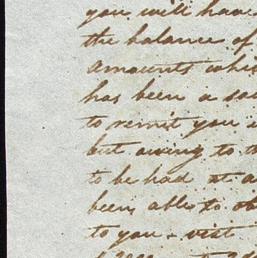 you will have
the balance of
amounts whi
has been a so
to remit you i
but owing to th
to be had at a
been able to ob
to you